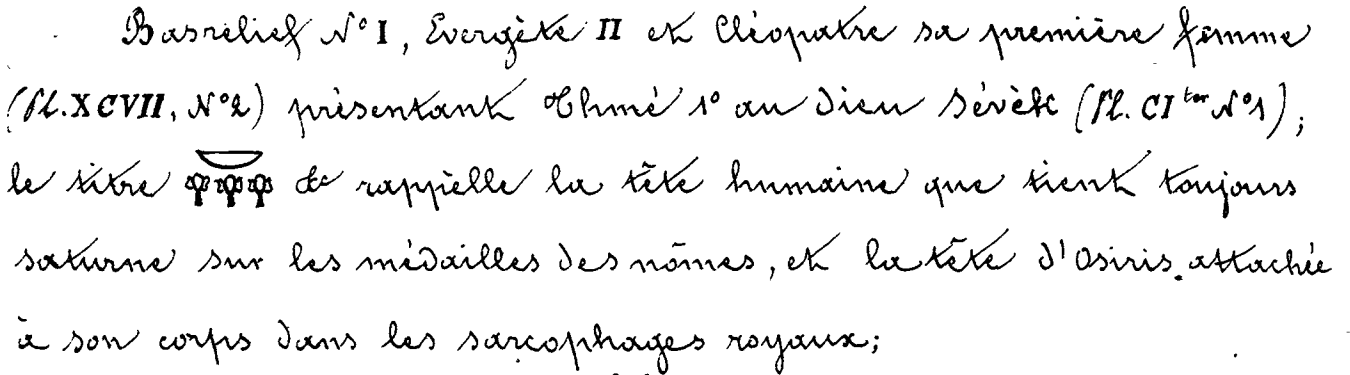 Basrelief N° I, Evergète II et Cléopatre sa première femme
(Pl. XCVII, N° 2) présentant Thmé 1° au dieu Sévèk (Pl. CI ter N° 1),
le titre 𓎟𓁶𓁶𓁶 &c rappèlle la tête humaine que tient toujours
saturne sur les médailles des nômes, et la tête d'Osiris attachée
à son corps dans les sarcophages royaux;